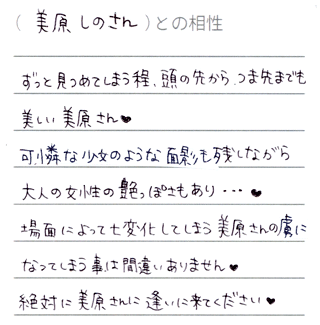 （美原しのさん）との相性
ずっと見つめてしまう程、頭の先からつま先までも
美しい美原さん♥
可憐な少女のような面影も残しながら
大人の女性の艶っぽさもあり・・・♥
場面によって七変化してしまう美原さんの虜に
なってしまう事は間違いありません♥
絶対に美原さんに逢いに来てください♥